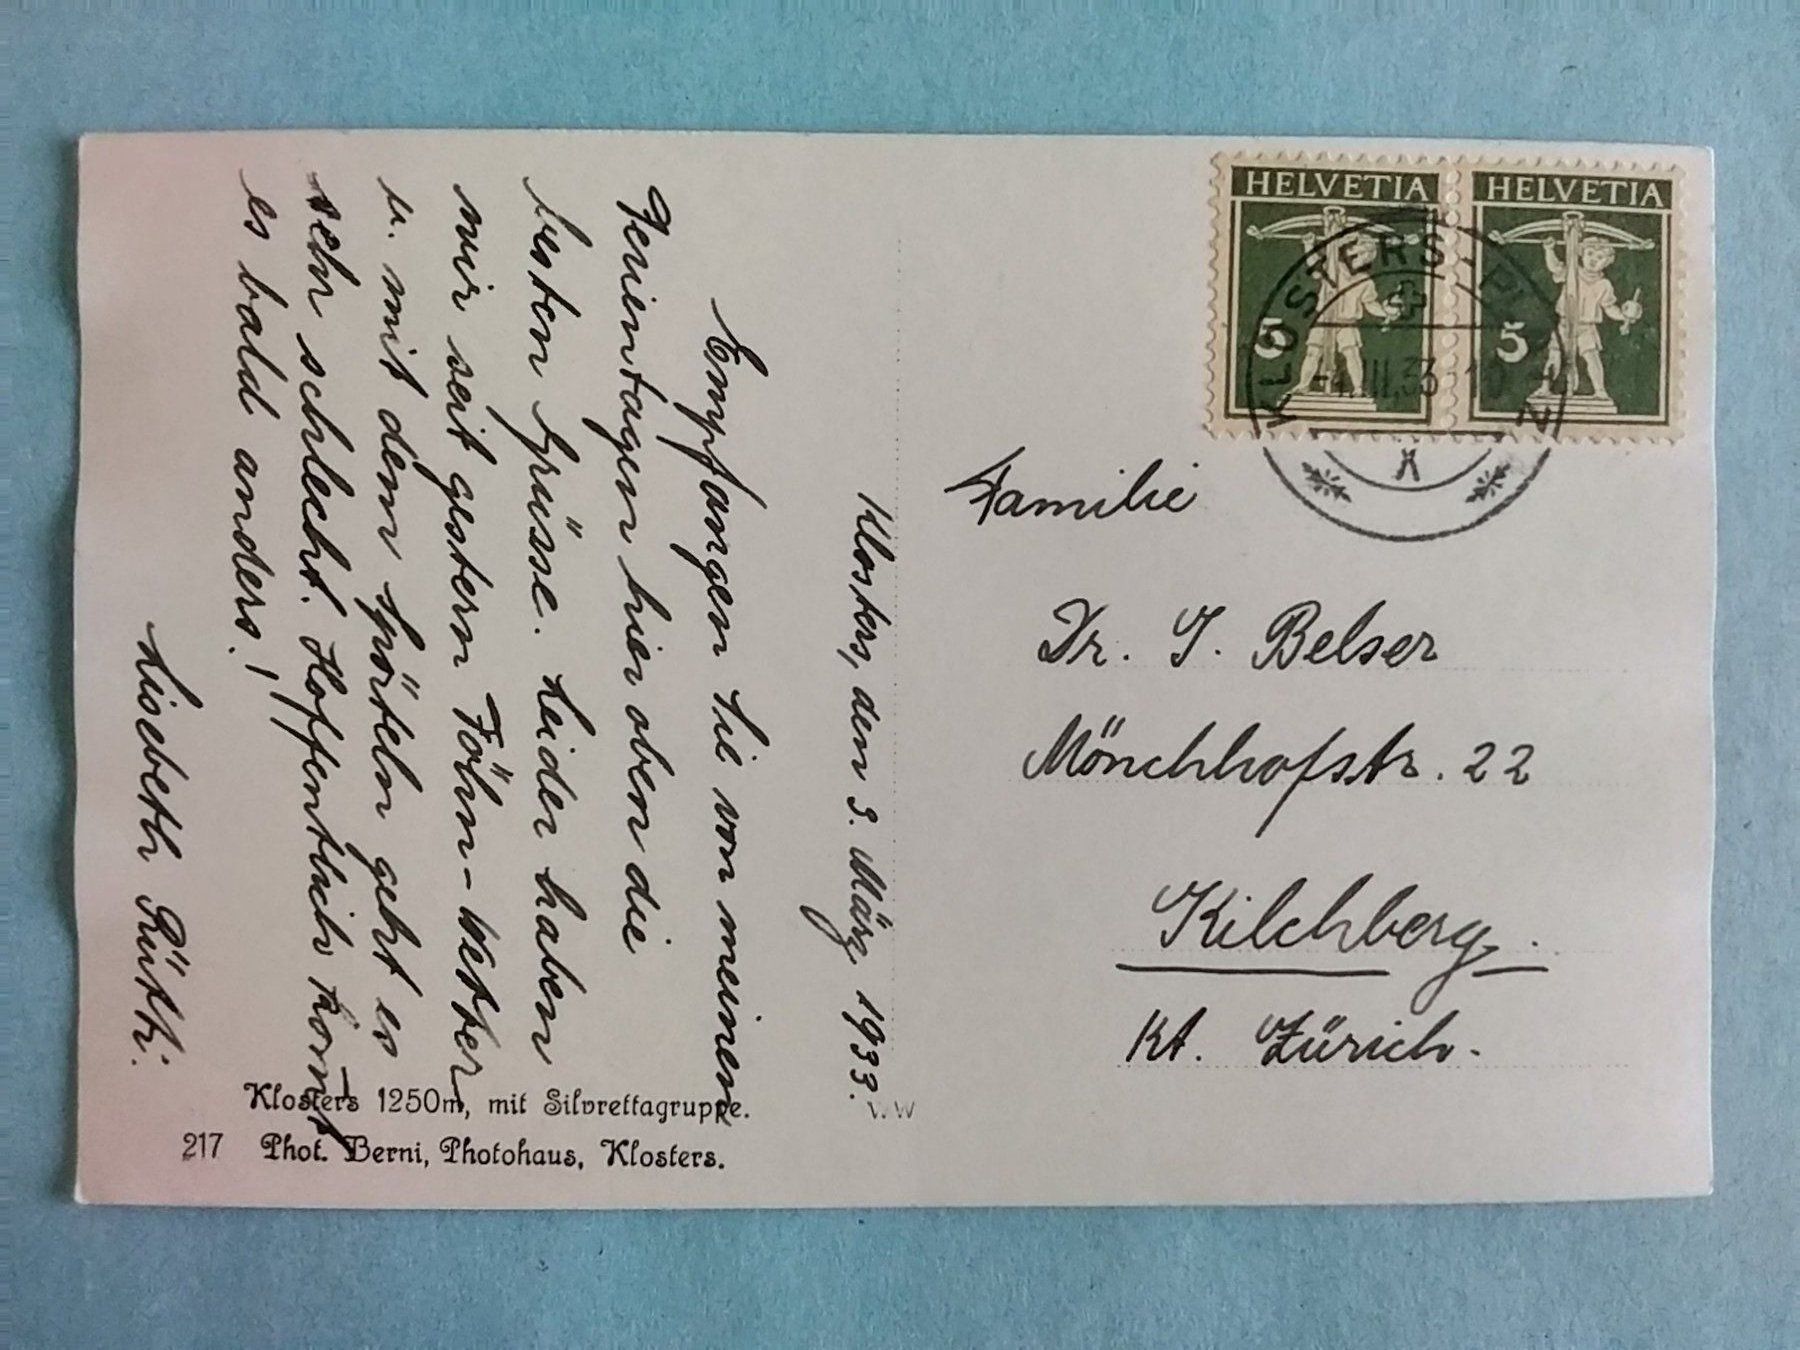 Klosters, den 3. März 1933.
Empfangen Sie von meinen
Ferientagen hier oben die
besten Grüsse. Leider haben
wir seit gestern Föhn-Wetter
u. mit dem Spörteln geht es
sehr schlecht. Hoffentlich komt
es bald anders!
Lisebeth Rütti.
HELVETIA HELVETIA
5 5
KLOSTERS-PLATZ
-4.III.33-10
Familie
Dr. J. Belser
Mönchhofstr. 22
Kilchberg.
Kt. Zürich.
Klosters 1250m, mit Silvrettagruppe.
217 Phot. Berni, Photohaus, Klosters.